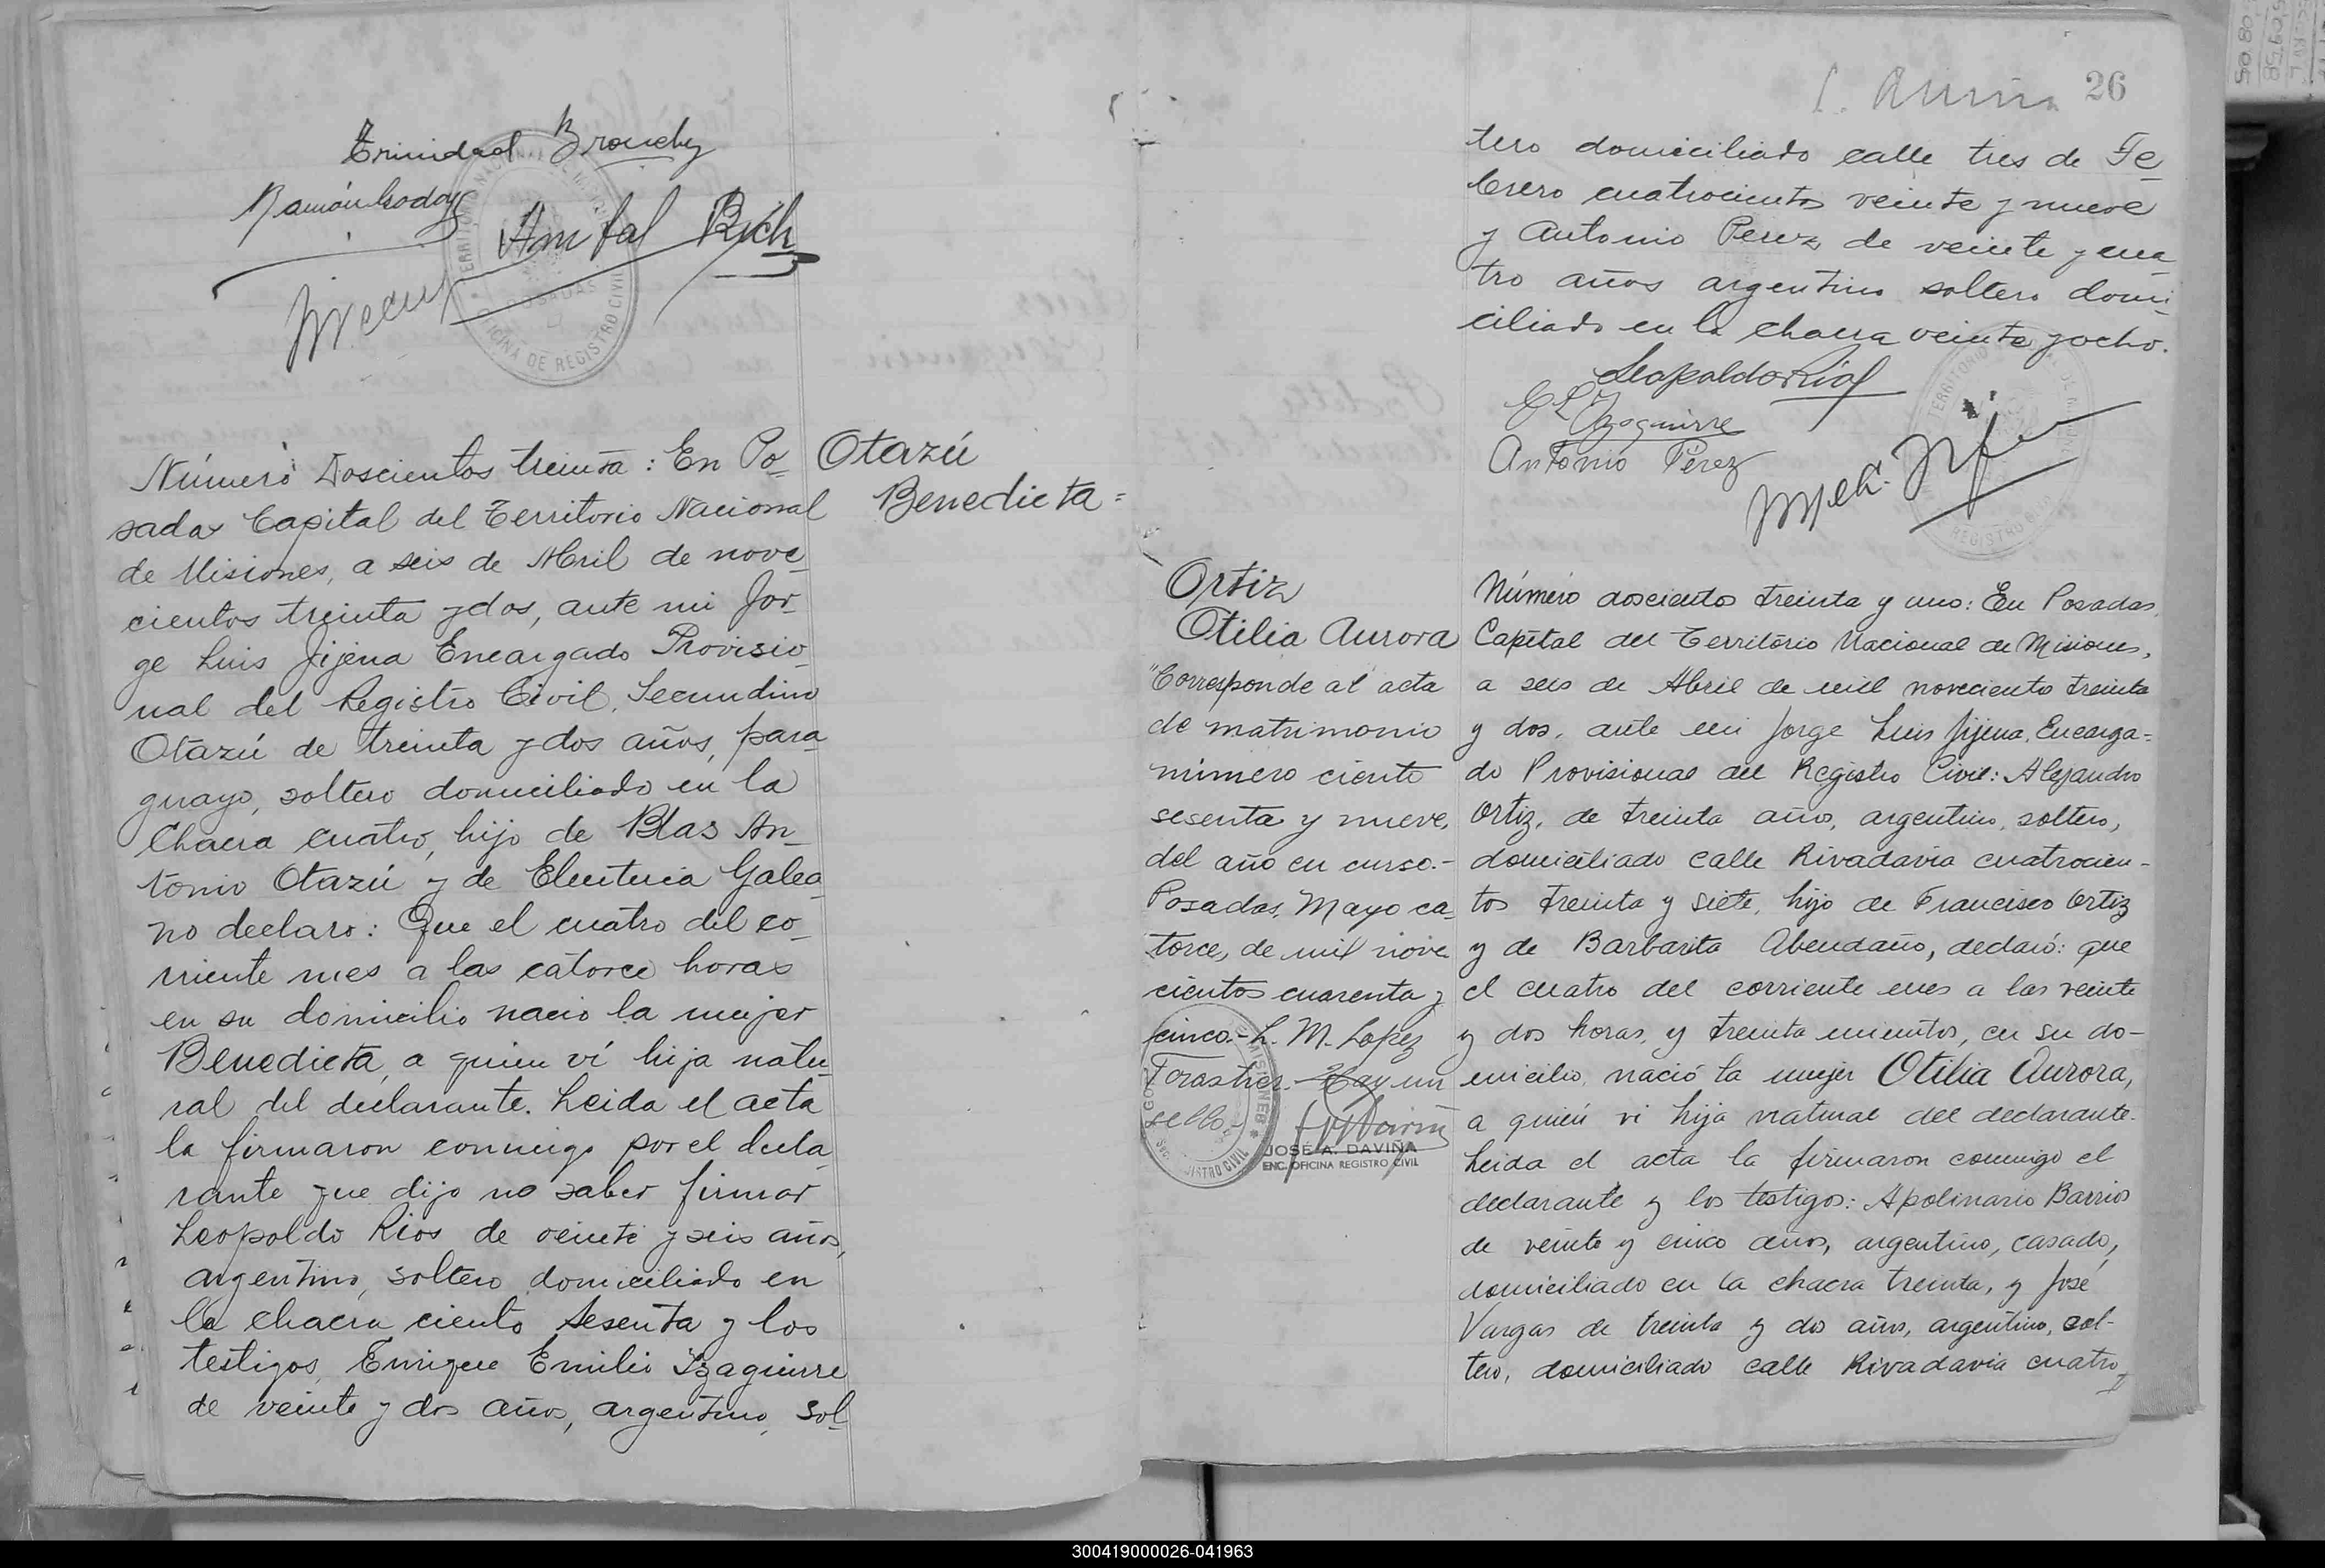 Trinidad
Ramón Godoy
Anibal
OFICINA DE REGISTRO CIVIL
Número Doscientos treinta: En Po-
sadas Capital del Territorio Nacional
de Misiones, a seis de Abril de nove-
cientos treinta y dos, ante mi Jor-
ge Luis Jijena Encargado Provisio-
nal del Registro Civil, Secundino
Otazú de treinta y dos años, para-
guayo, soltero domiciliado en la
Chacra cuatro, hijo de Blas An-
tonio Otazú y de Eleuteria Galea-
no declaro: Que el cuatro del co-
rriente mes a las catorce horas
en su domicilio nacio la mujer
Benedicta, a quien ví hija natu-
ral del declarante. Leida el acta
la firmaron conmigo por el decla-
rante que dijo no saber firmar
Leopoldo Rios de veinte y seis años,
argentino, soltero domiciliado en
la chacra ciento sesenta y los
testigos, Enrique Emilio Yzaguirre
de veinte y dos años, argentino, sol-
Otazú
Benedicta =
26
tero domiciliado calle tres de Fe-
brero cuatrocientos veinte y nueve
y Antonio Perez de veinte y cua-
tro años argentino soltero domi-
ciliado en la chacra veinte y ocho.
Leopoldo Rios
E Yzaguirre
Antonio Perez
REGISTRO
Ortiz
Otilia Aurora
"Corresponde al acta
de matrimonio
número ciento
sesenta y nueve,
del año en curso.-
Posadas, Mayo ca-
torce, de mil nove
cientos cuarenta y
cinco.- L. M. Lopez
Forastier.- Hay un
sello.-
JOSÉ A. DAVIÑA
ENC. OFICINA REGISTRO CIVIL
Número doscientos treinta y uno: En Posadas,
Capital del Territorio Nacional de Misiones,
a seis de Abril de mil novecientos treinta
y dos, ante mi Jorge Luis Jijena, Encarga-
do Provisional del Registro Civil: Alejandro
Ortiz, de treinta años, argentino, soltero,
domiciliado calle Rivadavia cuatrocien-
tos treinta y siete, hijo de Francisco Ortiz
y de Barbarita Abendaño, declaró: que
el cuatro del corriente mes a las veinte
y dos horas, y treinta minutos, en su do-
micilio, nació la mujer Otilia Aurora,
a quién vi hija natural del declarante.
Leida el acta la firmaron conmigo el
declarante y los testigos: Apolinario Barrios
de veinte y cinco años, argentino, casado,
domiciliado en la chacra treinta, y José
Vargas de treinta y dos años, argentino, sol-
tero, domiciliado calle Rivadavia cuatro-
300419000026-041963